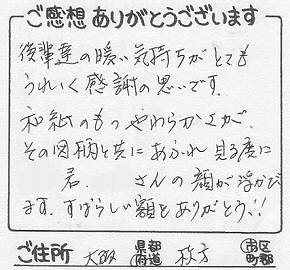 ご感想ありがとうございます
後輩達の暖い気持ちがとても
うれしく感謝の思いです。
和紙のもつやわらかさが、
その図柄と共にあふれ見る度に
君、 さんの顔が浮かび
ます。すばらしい額をありがとう!!
ご住所 大阪 都道府県 枚方 市区町郡